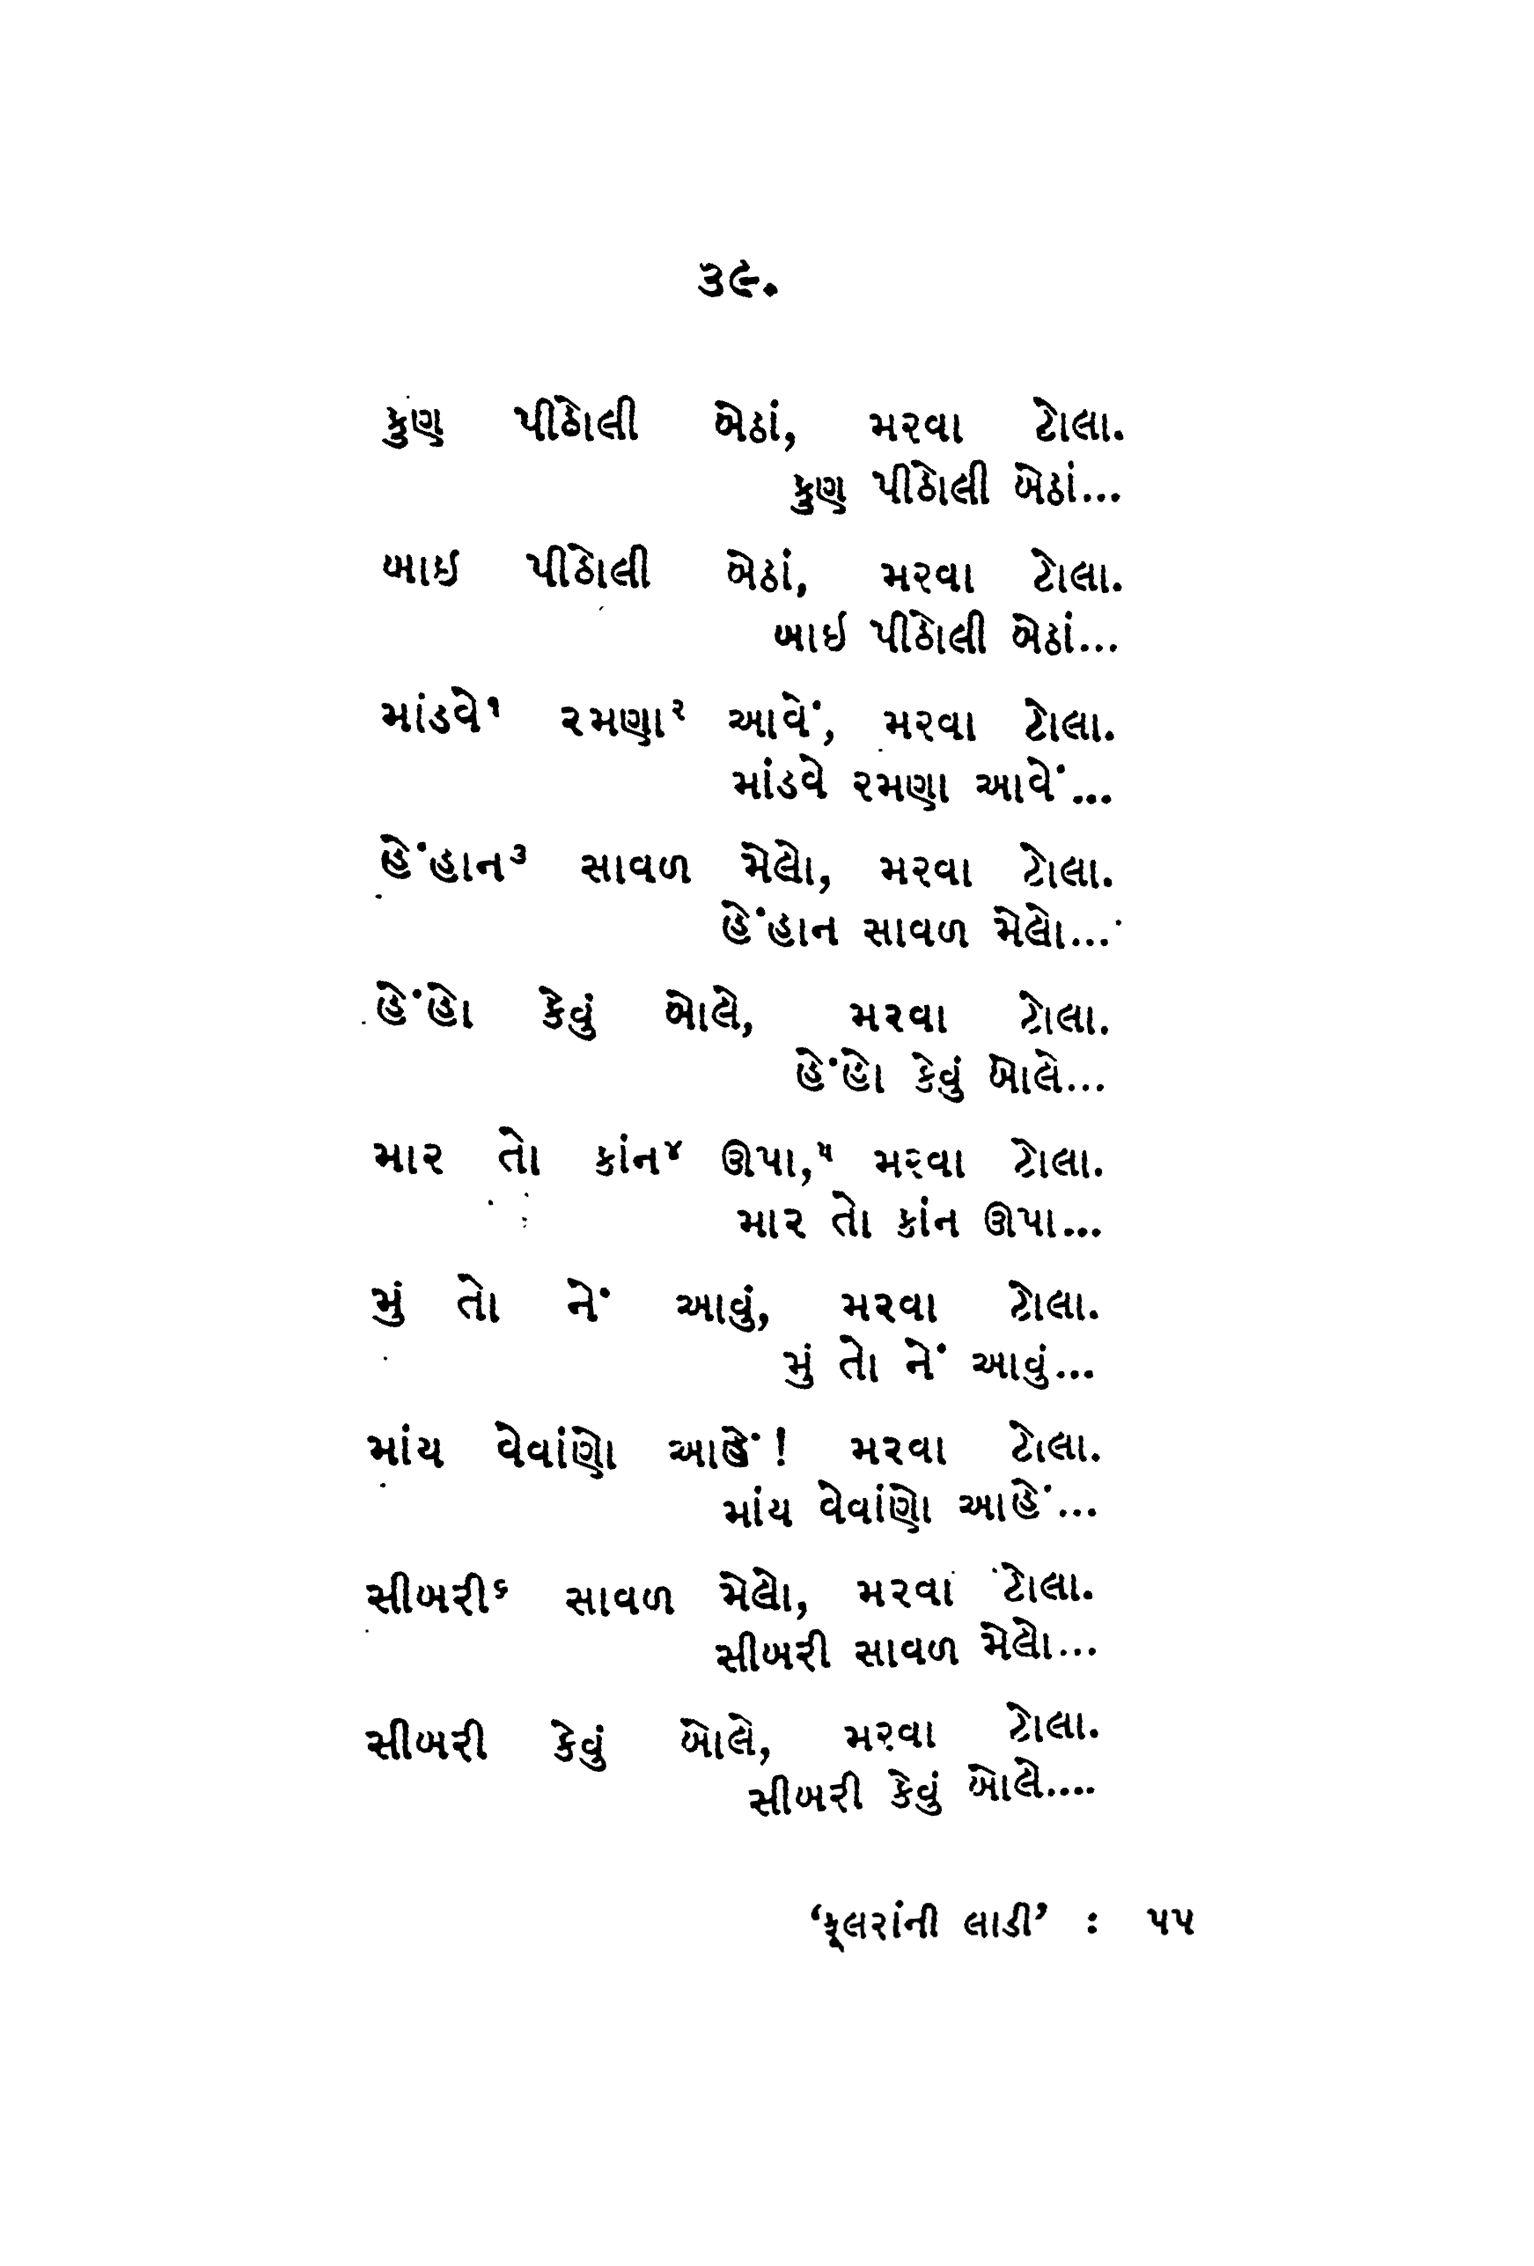 ૩૯.
કુણ પીઠોલી બેઠાં, મરવા ટોલા.
કુણ પીઠોલી બેઠાં...
બાઇ પીઠોલી બેઠાં, મરવા ટોલા.
બાઇ પીઠોલી બેઠાં...
માંડવે૧ રમણા૨ આવેં, મરવા ટોલા.
માંડવે રમણા આવેં...
હેંહાન૩ સાવળ મેલો, મરવા ટોલા.
હેંહાન સાવળ મેલો...
હેંહો કેવું બોલે, મરવા ટોલા.
હેંહો કેવું બોલે...
માર તો કાંન૪ ઊપા,૫ મરવા ટોલા.
માર તો કાંન ઊપા...
મું તો નેં આવું, મરવા ટોલા.
મું તો નેં આવું...
માંય વેવાંણો આહેં! મરવા ટોલા.
માંય વેવાંણો આહેં...
સીબરી૬ સાવળ મેલો, મરવા ટોલા.
સીબરી સાવળ મેલો...
સીબરી કેવું બોલે, મરવા ટોલા.
સીબરી કેવું બોલે....
‘ફૂલરાંની લાડી’ : ૫૫